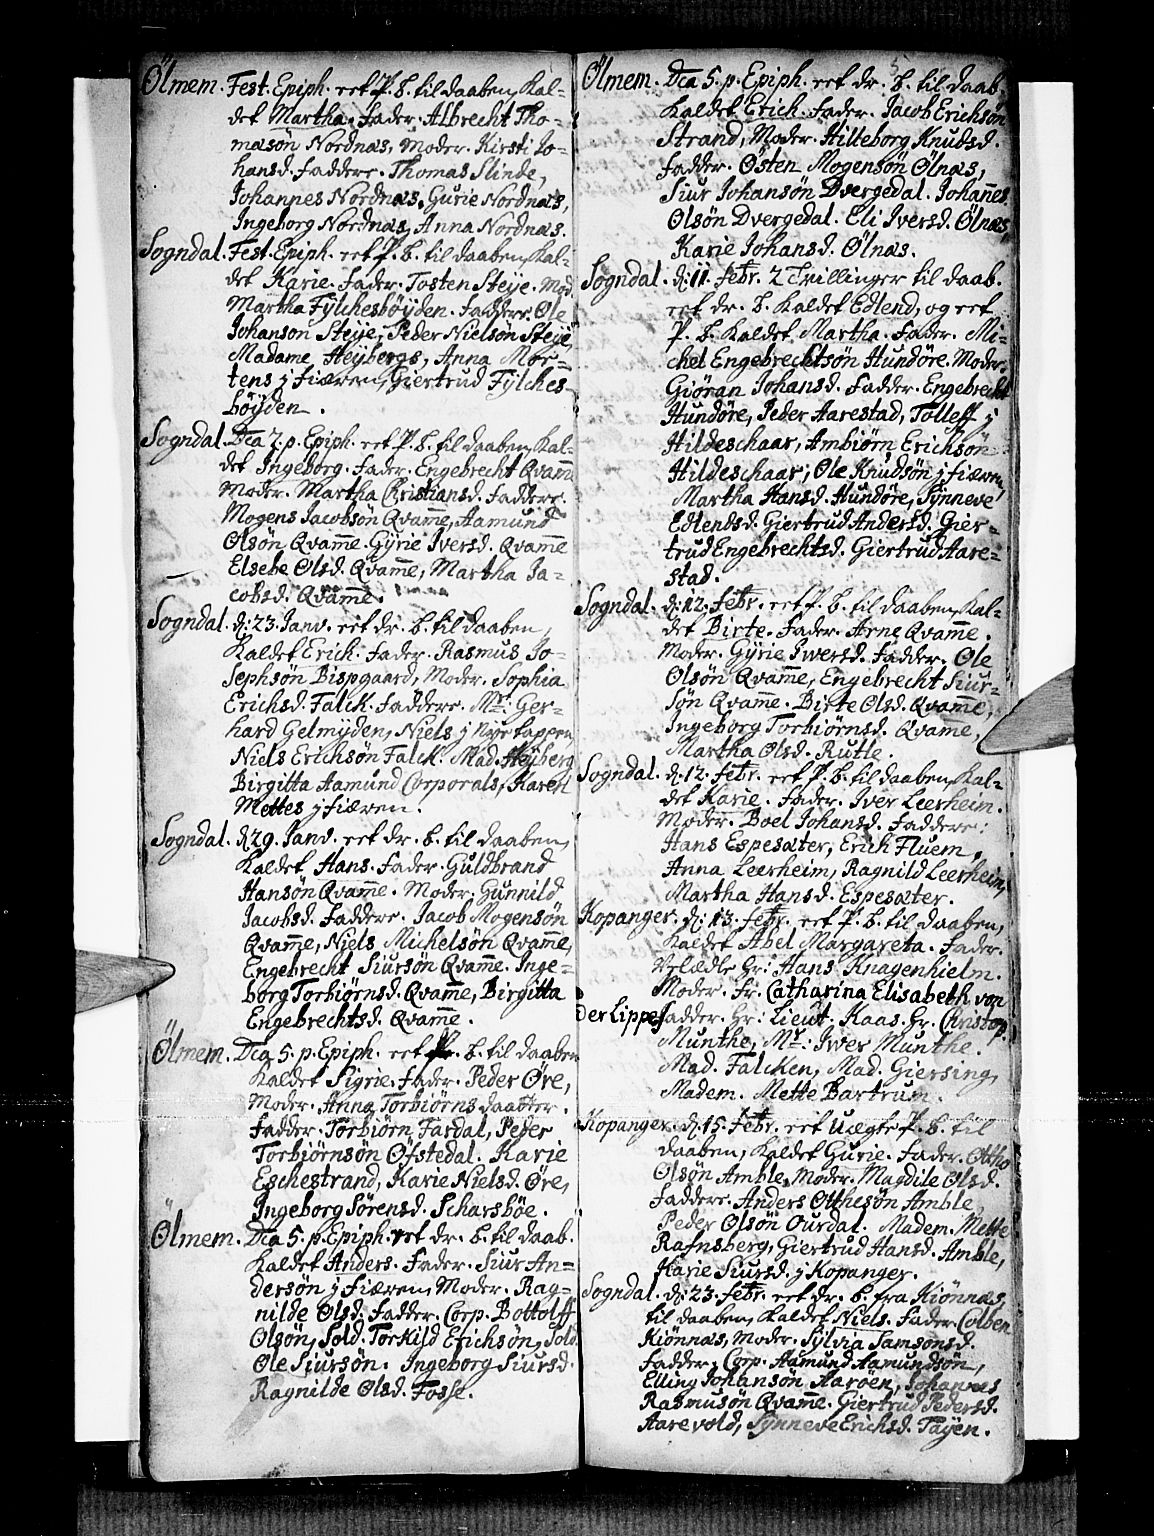 Ölmem. Fest. Epiph. eet P. B. til daaben, Kal-
det Martha. Fader. Albrecht Tho-
masön Nordnæs, Moder. Kirsti Jo-
hansd. Faddere. Thomas Slinde,
Johannes Nordnæs, Gurie Nordnæs,
Ingeborg Nordnæs, Anna Nordnæs.
Sogndal. Fest. Epiph. eet P. B. til daaben, Kal-
det Karie. Fader. Tosten Steÿe. Mod.
Martha Fÿlchesböÿden. Faddere. Ole
Johanson Steÿe, Peder Nielsön Steÿe,
Madame Heÿbergs, Anna Mor-
tens j fiæren, Giertrud Fÿlches-
böÿden.
Sogndal. Dca 2. p. Epiph. eet P. B. til daaben, Kal-
det Ingeborg. Fader. Engebrecht Qvam̄e
Moder. Martha Christiansd. Faddere.
Mogens Jacobsön Qvam̄e, Aamund
Olsön Qvam̄e. Gÿrie Iversd. Qvam̄e
Elsebe Olsd. Qvam̄e, Martha Ja-
cobsd. Qvam̄e.
Sogndal. d. 23. Janv. eet dr. B. til daaben,
Kaldet Erich. Fader. Rasmus Jo-
sephsön Bispgaard, Moder. Sophia
Erichsd. Falck. Faddere. Mr: Ger-
hard Gelmÿden, Niels j Nÿe tappen,
Niels Erichsön Falck. Mad. Heÿberg
Birgitta Aamund Corporals, Karen
Mettes j fiæren.
Sogndal. d. 29. Janv. eet dr. B. til daaben,
Kaldet Hans. Fader. Guldbrand
Hansön Qvam̄e. Moder. Gunnild
Jacobsd. Faddere. Jacob Mogensön
Qvam̄e, Niels Michelsön Qvam̄e,
Engebrecht Siursön Qvam̄e. Inge-
borg Torbiörnsd. Qvam̄e, Birgitta
Engebrechtsd. Qvam̄e.
Ölmem. Dca 5. p. Epiph. eet P. B. til daaben
Kaldet Sigrie. Fader. Peder Öre,
Moder. Anna Torbiörns daatter.
Fadder. Torbiörn Fardal, Peder
Torbiörnsön Öfstedal. Karie
Eschestrand, Karie Nielsd. Öre,
Ingeborg Sörensd. Scharsböe.
Ölmem. Dca 5. p. Epiph. eet dr. B. til daab.
Kaldet Anders. Fader. Siur An-
dersön j fiæren, Moder. Rag-
nilde Olsd. Fadder. Corp. Bottolff
Olsön, Sold. Torkild Erichson, Sold.
Ole Siursön. Ingeborg Siursd.
Ragnilde Olsd. Fosse.
5
Ölmem. Dca 5. p. Epiph. eet dr. B. til daab.
Kaldet Erich. Fader. Jacob Erichsön
Strand, Moder. Hilleborg Knudsd.
Fadder. Östen Mogensön Ölnæs,
Siur Johansön Dvergedal. Johan̄es
Olsön Dvergedal. Eli Iversd. Ölnæs,
Karie Johansd. Ölnæs.
Sogndal. d. 11. Febr. 2 Trillinger til daab.
eet dr. B. Kaldet Edlend, og eet
P. B. Kaldet Martha. Fader. Mi-
chel Engebrechtsön Hundöre. Moder.
Giöran Johansd. Fadder. Engebrecht
Hundöre, Peder Aarestad, Tolleff j
Hildeschaar, Ambiörn Erichsön
Hildeschaar, Ole Knudsön j fiæren,
Martha Hansd. Hundöre, Sÿnneve
Edlendsd. Giertrud Andersd. Gier-
trud Engebrechtsd. Giertrud Aare-
stad.
Sogndal. d. 12. Febr. eet P. B. til daaben, Kal-
det Birte. Fader. Arne Qvam̄e.
Moder. Gÿrie Iwersd. Fadder. Ole
Olsön Qvam̄e, Engebrecht Siur-
sön Qvam̄e. Birte Olsd. Qvam̄e,
Ingeborg Torbiörnsd. Qvam̄e,
Martha Olsd. Rutle.
Sogndal. d. 12. Febr. eet P. B. til daaben, Kal-
det Karie. Fader. Iver Leerheim.
Moder. Boel Johansd. Faddere:
Hans Espesæter, Erich Fluem,
Anna Leerheim, Ragnild Leerheim,
Martha Hansd. Espesæter.
Kopanger. d. 13. Febr. eet P. B. til daaben,
Kaldet Abel Margareta. Fader.
Velædle Hr: Hans Knagenhielm.
Moder. Fr. Catharina Elisabeth von
der Lippe. Fadder. Hr: Lieut. Kaas. Hr. Christop.
Munthe, Mr: Iwer Munthe.
Mad. Falcken, Mad. Giersing,
Madem. Mette Bartrum.
Kopanger. d. 15. Febr. eet Uægte P. B. til
daaben, Kaldet Gurie. Fader. Otthe
Olsön Amble, Moder. Magdile Olsd.
Faddere. Anders Otthesön Amble,
Peder Olsön Ourdal. Madem. Mette
Rafnsberg, Giertrud Hansd. Amble,
Karie Siursd. j Kopanger.
Sogndal. d. 23. Febr. eet dr. B. fra Kiönnæs
til daaben, Kaldet Niels. Fader. Colben
Kiönnæs, Moder. Sÿlvia Samsonsd.
Fadder, Corp. Aamund Aamundsön,
Elling Johansön Aaröen, Johannes
Rasmusön Qvam̄e. Giertrud Pedersd.
Aarevold, Sÿnneve Erichsd. Taÿen.